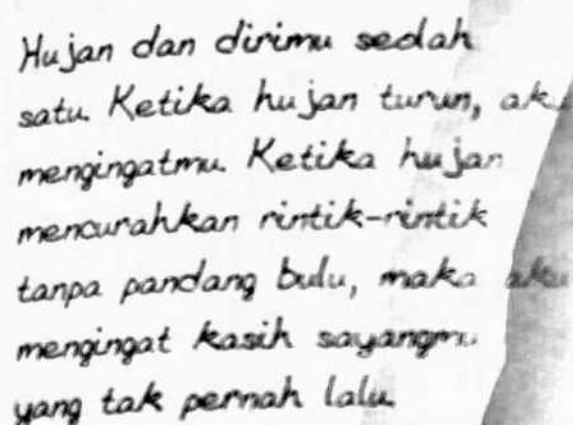 Hujan dan dirimu sedah
satu. Ketika hujan turun, aku
mengingatmu. Ketika hujan
mencurahkan rintik-rintik
tanpa pandang bulu, maka aku
mengingat kasih sayangmu
yang tak pernah lalu.